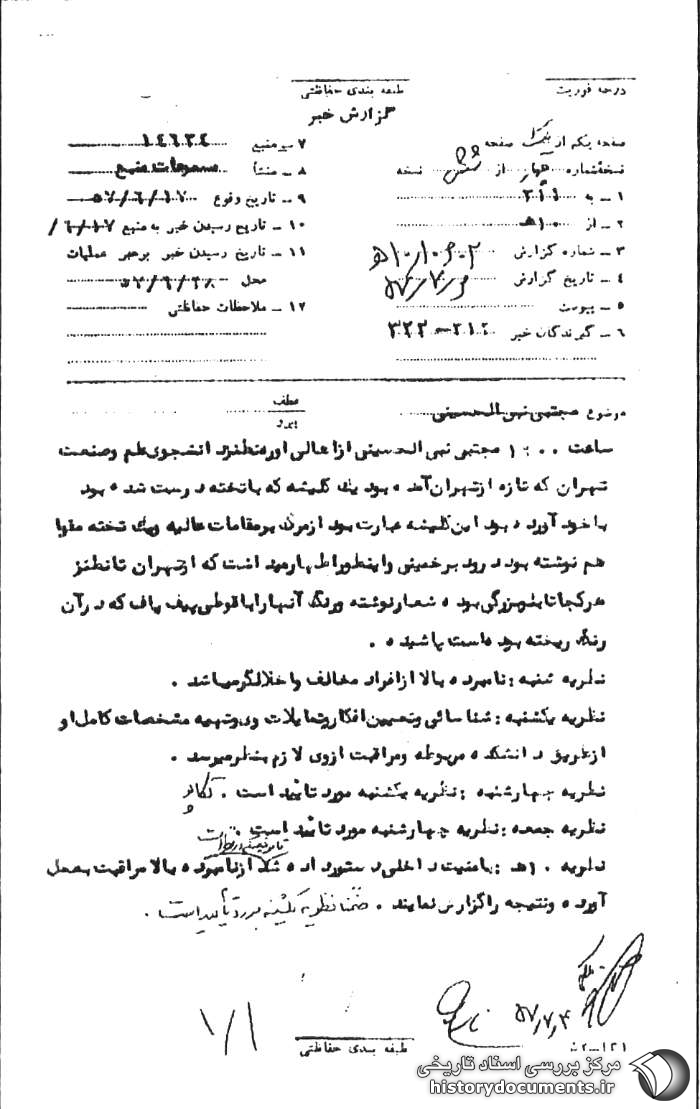 درجه فوریت
طبقه بندی حفاظتی
گزارش خبر
صفحه یکم از یک صفحه
نسخه شماره چهار از شش نسخه
۱ – به ۳۱۱
۲ – از ۱۰ ه‍
۳ – شماره گزارش ۱۰۶۰۲/ ۱۰ ه‍
۴ – تاریخ گزارش
۵ – پیوست
۶ – گیرندگان خبر ۲۱۲ – ۳۲۲
۷ – منبع ۱۴۶۳۴
۸ – منشأ مسموعات منبع
۹ – تاریخ وقوع ۵۷/۶/۱۷
۱۰ – تاریخ رسیدن خبر به منبع ۶/۱۷/
۱۱ – تاریخ رسیدن خبر برهبر عملیات
محل ۵۷/۶/۲۸
۱۲ – ملاحظات حفاظتی
موضوع مجتبی نبی الحسینی
عطف
ساعت ۱۰۰۰ مجتبی نبی الحسینی از اهالی اوره نطنز دانشجوی علم وصنعت
تهران که تازه ازتهران آمده بود یک کلیشه که باتخته درست شده بود
باخود آورده بود این کلیشه عبارت بود ازمرگ بر مقامات عالیه ویک تخته مقوا
هم نوشته بود درود برخمینی واینطوراظهارمید اشت که ازتهران تانطنز
هرکجاتابلو بزرگی بوده شعارنوشته ورنگ آنهارابا قوطی پیف پاف که درآن
رنگ ریخته بود است پاشیده .
نظریه شنبه : نامبرده بالا ازافراد مخالف واخلالگرمیباشد .
نظریه یکشنبه : شناسائی وتعیین افکاروتمایلات وی وتهیه مشخصات کامل او
ازطریق دانشکده مربوطه ومراقبت ازوی لازم بنظرمیرسد .
نظریه چهارشنبه : نظریه یکشنبه مورد تائید است .
نظریه جمعه : نظریه چهارشنبه مورد تائید است .
نظریه ۱۰ ه‍ : بامنیت داخلی دستورداده شد ازنامبرده بالا مراقبت بعمل
آورده ونتیجه راگزارش نمایند . ضمنا نظریه یکشنبه مورد تأیید است .
۵۷/۷/۴
۱/۱
طبقه بندی حفاظتی
مرکز بررسی اسناد تاریخی
historydocuments.ir